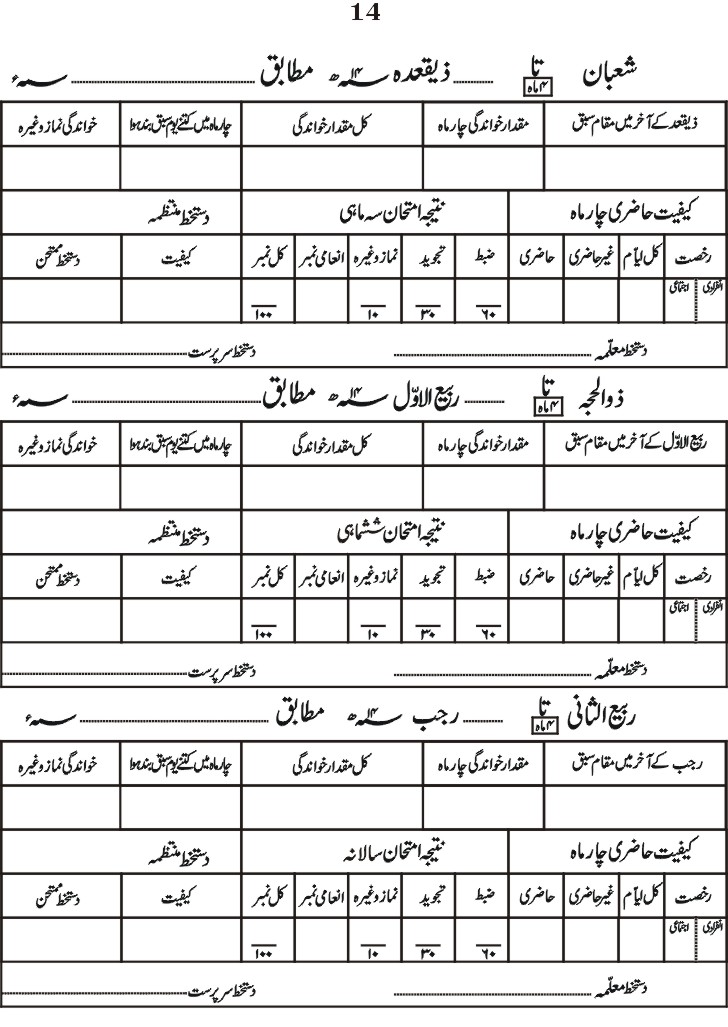 14
شعبان تا ۴ ماہ ........ ذیقعدہ ۱۴ھ مطابق ........ ء
ذیقعد کے آخر میں مقام سبق مقدار خواندگی چار ماہ کل مقدار خواندگی چار ماہ میں کتنے یوم سبق بند ہوا خواندگی نماز وغیرہ
کیفیت حاضری چار ماہ نتیجہ امتحان سہ ماہی دستخط منتظمہ
رخصت کل ایام غیر حاضری حاضری ضبط تجوید نماز وغیرہ انعامی نمبر کل نمبر کیفیت دستخط ممتحن
انفرادی اجتماعی ۶۰ ۳۰ ۱۰ ۱۰۰
دستخط معلّمہ ........ دستخط سرپرست ........
ذوالحجہ تا ۴ ماہ ........ ربیع الاوّل ۱۴ھ مطابق ........ ء
ربیع الاوّل کے آخر میں مقام سبق مقدار خواندگی چار ماہ کل مقدار خواندگی چار ماہ میں کتنے یوم سبق بند ہوا خواندگی نماز وغیرہ
کیفیت حاضری چار ماہ نتیجہ امتحان ششماہی دستخط منتظمہ
رخصت کل ایام غیر حاضری حاضری ضبط تجوید نماز وغیرہ انعامی نمبر کل نمبر کیفیت دستخط ممتحن
انفرادی اجتماعی ۶۰ ۳۰ ۱۰ ۱۰۰
دستخط معلّمہ ........ دستخط سرپرست ........
ربیع الثانی تا ۴ ماہ ........ رجب ۱۴ھ مطابق ........ ء
رجب کے آخر میں مقام سبق مقدار خواندگی چار ماہ کل مقدار خواندگی چار ماہ میں کتنے یوم سبق بند ہوا خواندگی نماز وغیرہ
کیفیت حاضری چار ماہ نتیجہ امتحان سالانہ دستخط منتظمہ
رخصت کل ایام غیر حاضری حاضری ضبط تجوید نماز وغیرہ انعامی نمبر کل نمبر کیفیت دستخط ممتحن
انفرادی اجتماعی ۶۰ ۳۰ ۱۰ ۱۰۰
دستخط معلّمہ ........ دستخط سرپرست ........